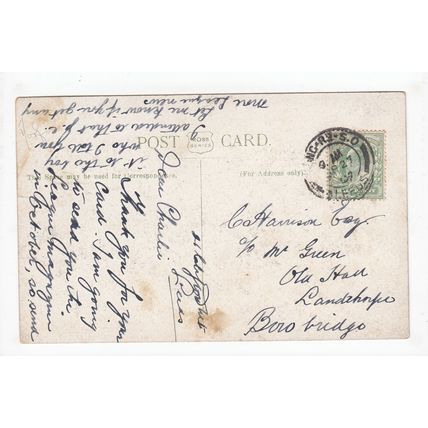 POST CARD.
ROSS
SERIES
This Space may be used for Correspondence.
(For Address only.)
Leeds
Dear Charlie
Thank you for your
card. I am going
to send you the
League magazine
in October, so send
it to the boy
who I told you
attention to that p.c.
let me know if you get any
more League news
C Harrison Esq.
c/o Mr Green
Old Hall
Landthorpe
Borobridge